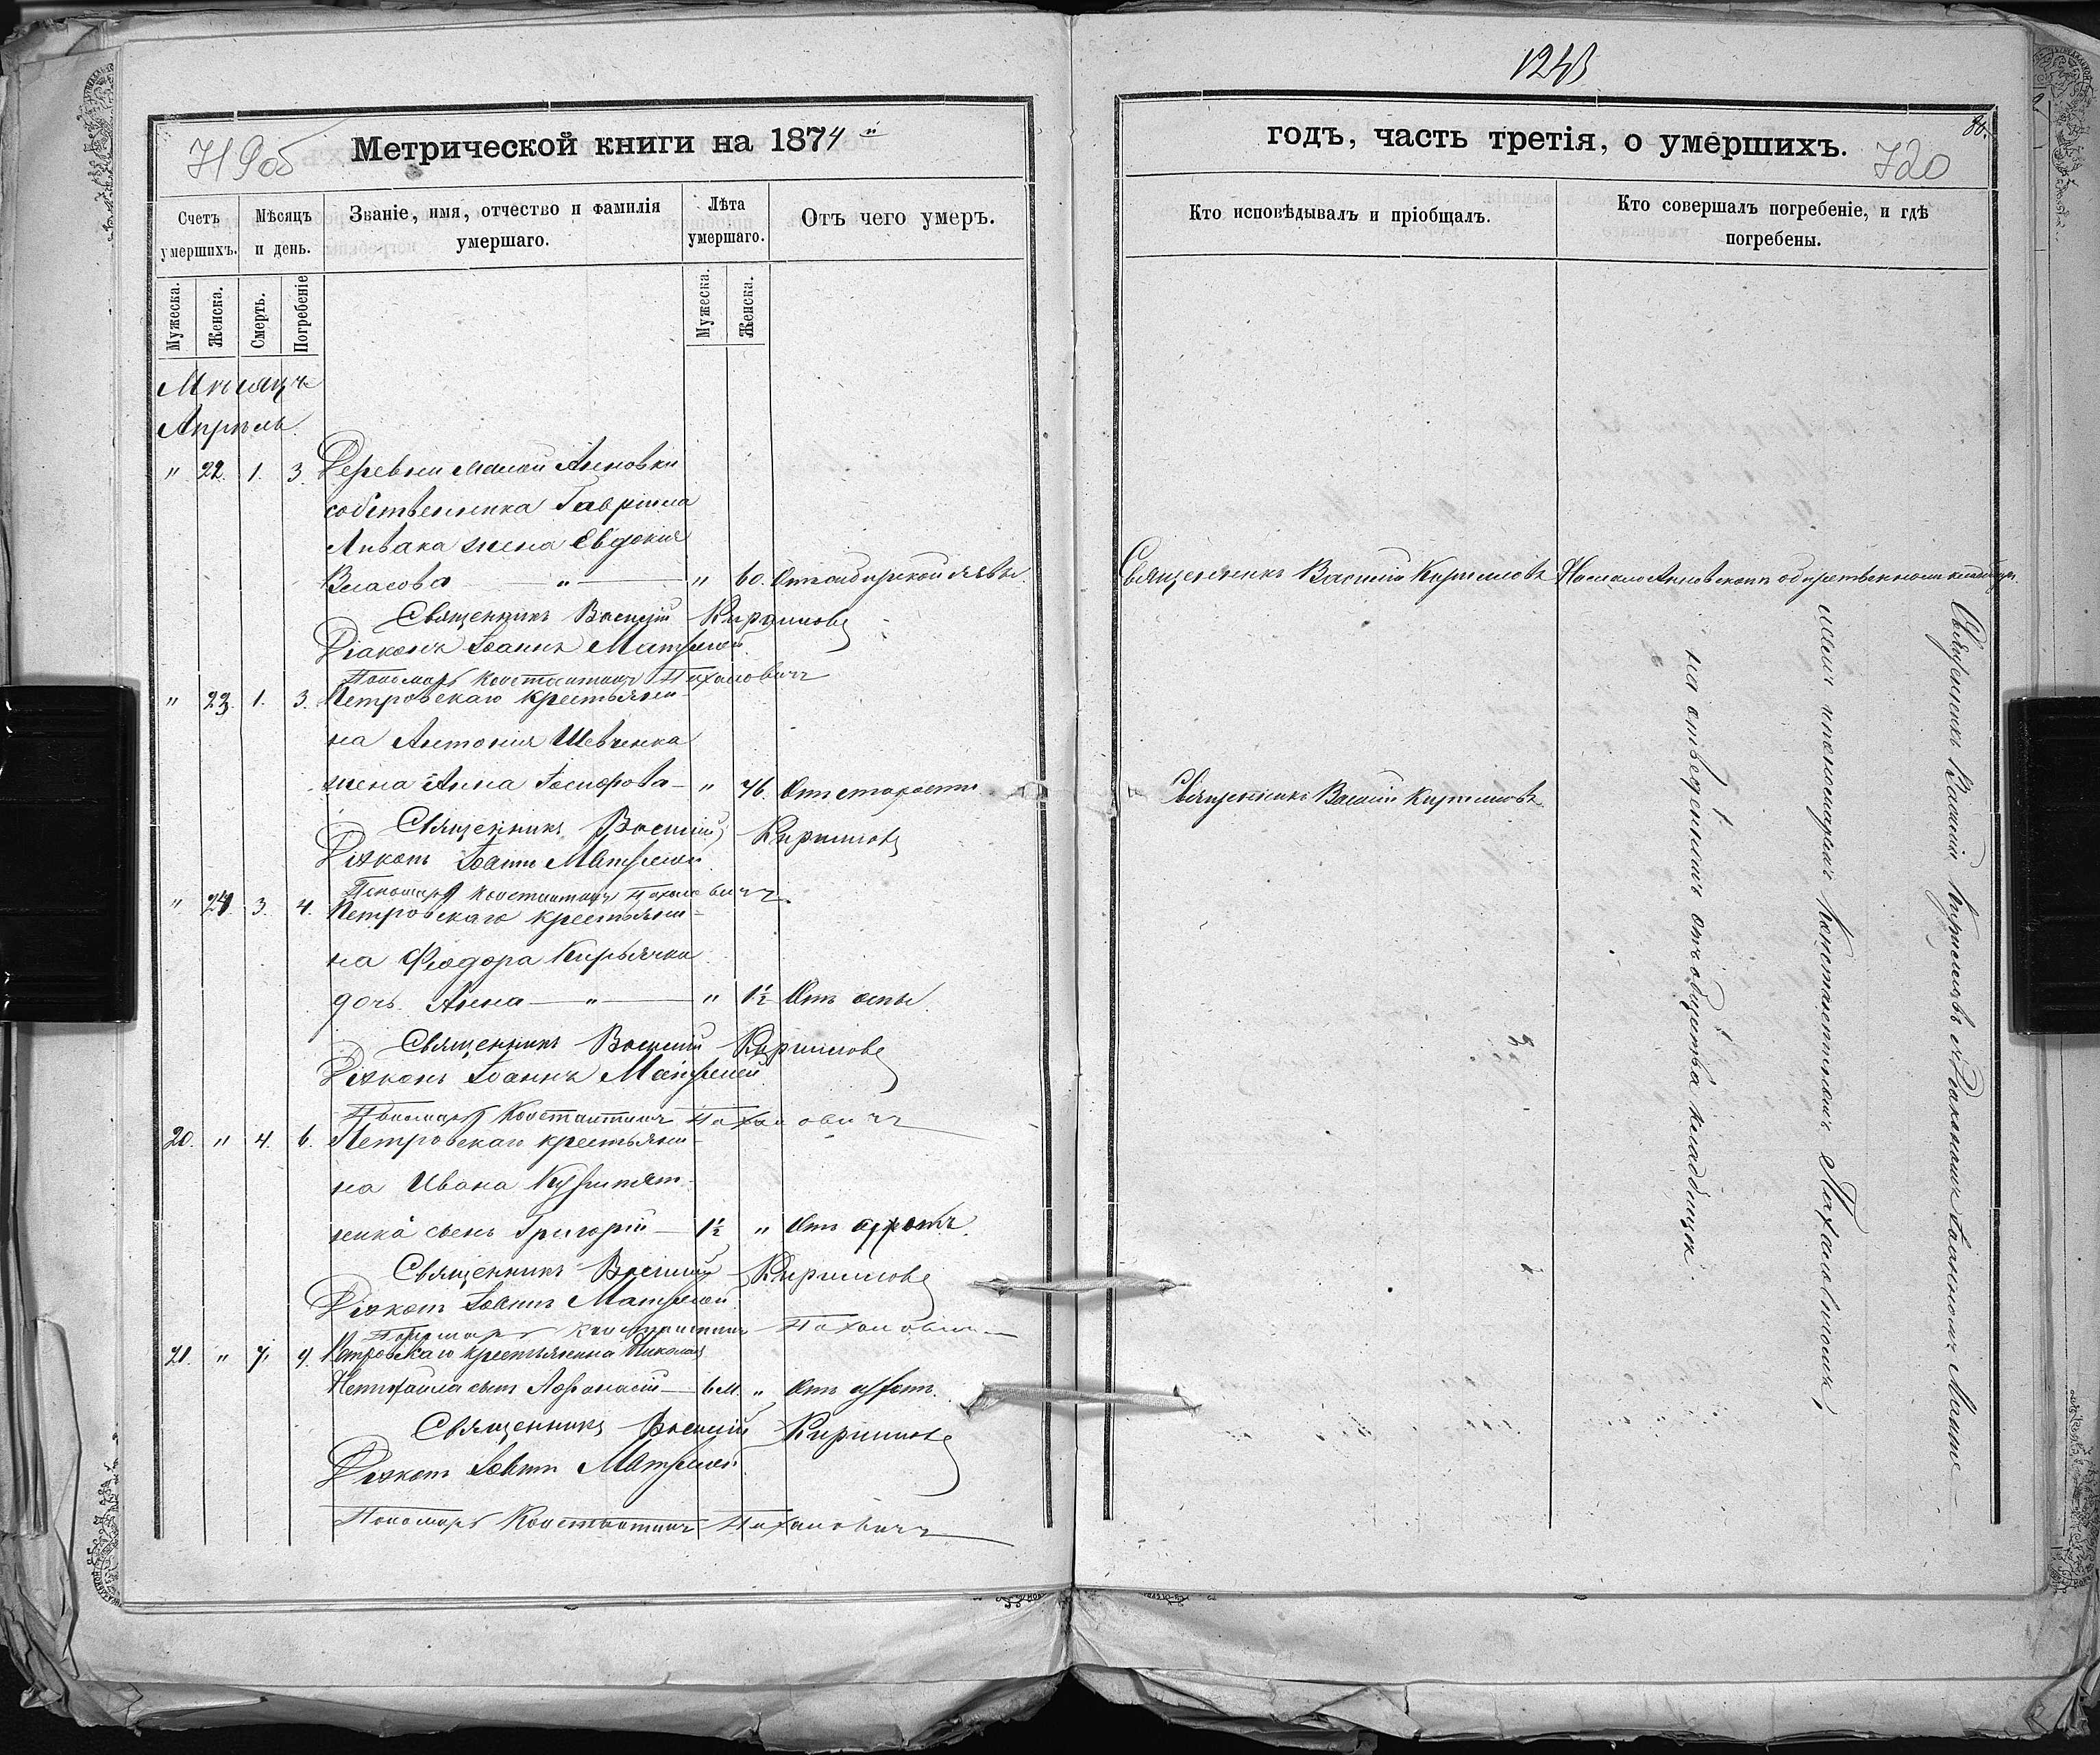 719об
Метрической книги на 1874
Счетъ умершихъ.
Мѣсяцъ и день.
Званіе, имя, отчество и фамилія умершаго.
Лѣта умершаго.
Отъ чего умеръ.
Мужеска. Женска. Смерть. Погребеніе Мужеска. Женска.
Мѣсяцъ
Апрѣль.
" 22. 1. 3. Деревни малой Анновки
собственника Гавріила
жена Евдокія
Власова " " 60. Отъ сибирской язвы.
Священникъ Василій Кириловъ
Діаконъ Іоаннъ
Пономарь Константинъ Пахаловичъ
" 23. 1. 3. Петровскаго крестьяни-
на Антонія Шевченка
жена Анна " 76. Отъ старости.
Священникъ Василій Кириловъ
Діаконъ Іоаннъ
Пономарь Константинъ Пахаловичъ
" 24. 3. 4. Петровскаго крестьяни-
на Феодора Кирьячка
дочь Анна " " 1½ Отъ оспы.
Священникъ Василій Кириловъ
Діаконъ Іоаннъ
Пономарь Константинъ Пахаловичъ
20. " 4. 6. Петровскаго крестьяни-
на Ивана
сынъ Григорій 1½ " Отъ
Священникъ Василій Кириловъ
Діаконъ Іоаннъ
Пономарь Константинъ Пахаловичъ
21. " 7. 9. Петровскаго крестьянина Николая
сынъ Афанасій 6 м. " Отъ
Священникъ Василій Кириловъ
Діаконъ Іоаннъ
Пономарь Константинъ Пахаловичъ
годъ, часть третія, о умершихъ.
720
Кто исповѣдывалъ и пріобщалъ.
Кто совершалъ погребеніе, и гдѣ погребены.
Священникъ Василій Кириловъ На мало Анновскомъ общественномъ кладбищѣ.
Священникъ Василій Кириловъ
Священникъ Василій Кириловъ съ Діакономъ Іоанномъ
и пономаремъ Константиномъ Пахаловичомъ,
на отведенномъ отъ общества кладбищѣ.